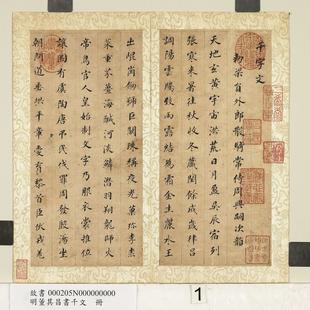 千字文
勑梁員外郎散騎常侍周興嗣次韻
天地玄黃宇宙洪荒日月盈昃辰宿列
張寒來暑往秋收冬藏閏餘成歲律呂
調陽雲騰致雨露結為霜金生麗水玉
出崐崗劒號巨闕珠稱夜光菓珍李柰
菜重芥薑海鹹河淡鱗潛羽翔龍師火
帝鳥官人皇始制文字乃服衣裳推位
讓國有虞陶唐弔民伐罪周發殷湯坐
朝問道垂拱平章愛育黎首臣伏戎羌
故書 000205N000000000
明董其昌書千文 冊
1